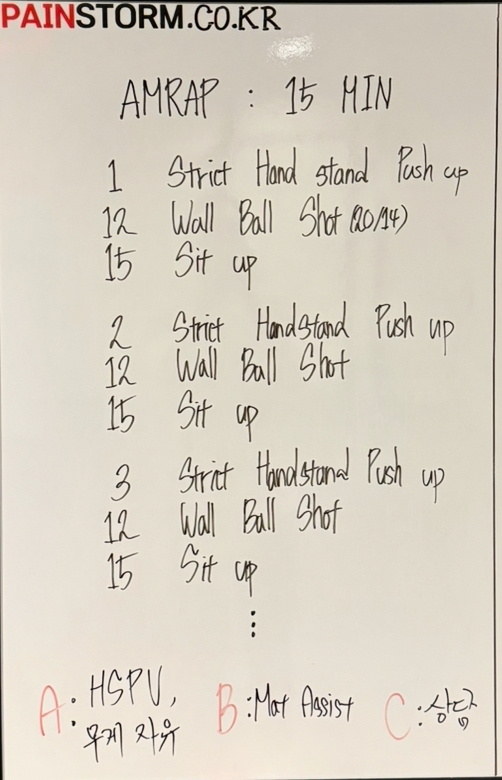 PAINSTORM.CO.KR
AMRAP : 15 MIN
1 Strict Hand stand Push up
12 Wall Ball Shot (20/14)
15 Sit up
2 Strict Handstand Push up
12 Wall Ball Shot
15 Sit up
3 Strict Handstand Push up
12 Wall Ball Shot
15 Sit up
⋮
A: HSPU, 무게 자유
B: Mat Assist
C: 상담